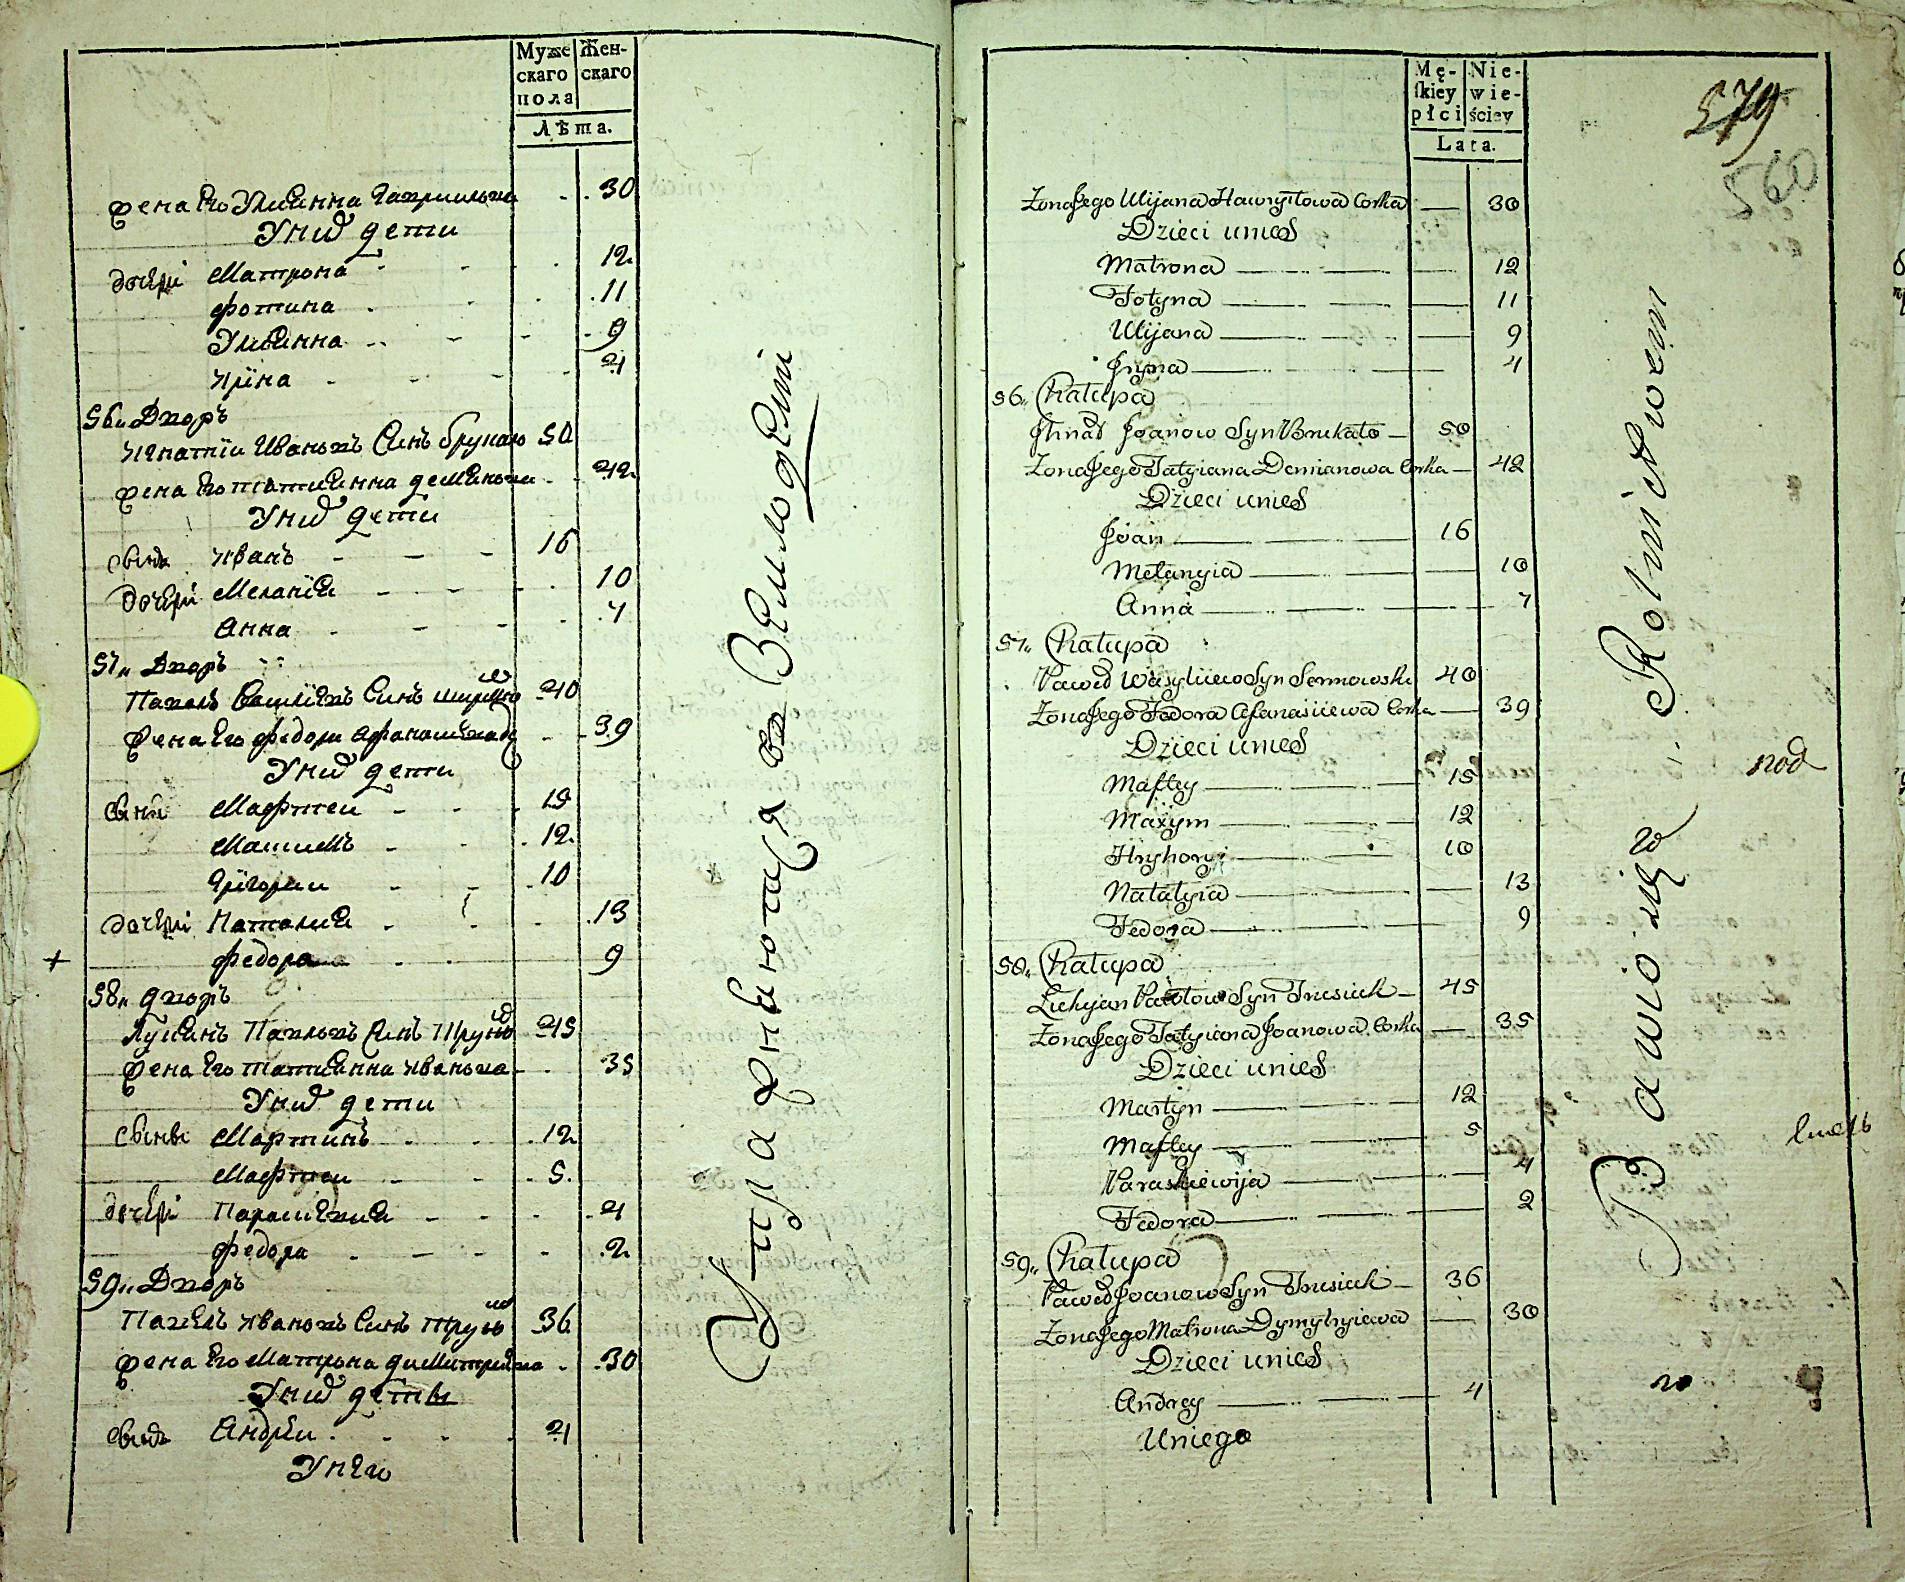 Муже
скаго
пола
Жен-
скаго
Лѣта.
жена Его Улиянна Гавриильова 30
У нихъ дети
дочери Матрона 12
Фотина 11
Улиянна 9
Ирина 4
56 Дворъ
Игнатїи Ивановъ Синъ Брукало 50
жена Его татиянна демянова 42
У нихъ дети
синъ Иванъ 16
дочери Меланїя 10
Анна 7
57 Дворъ
Павелъ Василїевъ Синъ 40
жена Его федора афанасиева 39
У нихъ дети
сини Мафтеи 15
Машимъ 12
Григории 10
дочери Наталия 13
+ федора 9
58 дворъ
Лукиянъ Павловъ Синъ 45
жена Его татиянна Иванова 35
У нихъ дети
сини Мартинъ 12
Мафтеи 5
дочери Парасковия 4
федора 2
59 Дворъ
Павелъ Ивановъ Синъ 36
жена Его Матрона димитриева 30
У нихъ дети
синъ Андреи 4
У него
Упражняются в Земледелїи
Mę-
ſkiey
płci
Nie-
wie-
ściey
Lata.
579
560
Zona Jego Ulijana Hawryłowa Corka 30
Dzieci unich
Matrona 12
Fotyna 11
Ulijana 9
Jryna 4
56 Chałupa
Jhnat Joanow Syn Brukało 50
Zona Jego Tatyiana Demianowa Corka 42
Dzieci unich
Joan 16
Mełanyia 10
Anna 7
57 Chałupa
Paweł Wasyliiew Syn Sermowski 40
Zona Jego Fedora Afanasiiewa Corka 39
Dzieci unich
Maftey 15
Maxym 12
Hryhory 10
Natałyia 13
Fedora 9
58 Chałupa
Łukjan Pawłow Syn Trusiuk 45
Zona Jego Tatyiana Joanowa Corka 35
Dzieci unich
Martyn 12
Maftey 5
Paraskiewija 4
Fedora 2
59 Chałupa
Paweł Joanow Syn Trusiuk 36
Zona Jego Matrona Dymytryiewa 30
Dzieci unich
Andrey 4
Uniego
Bawio się Rolnictwem